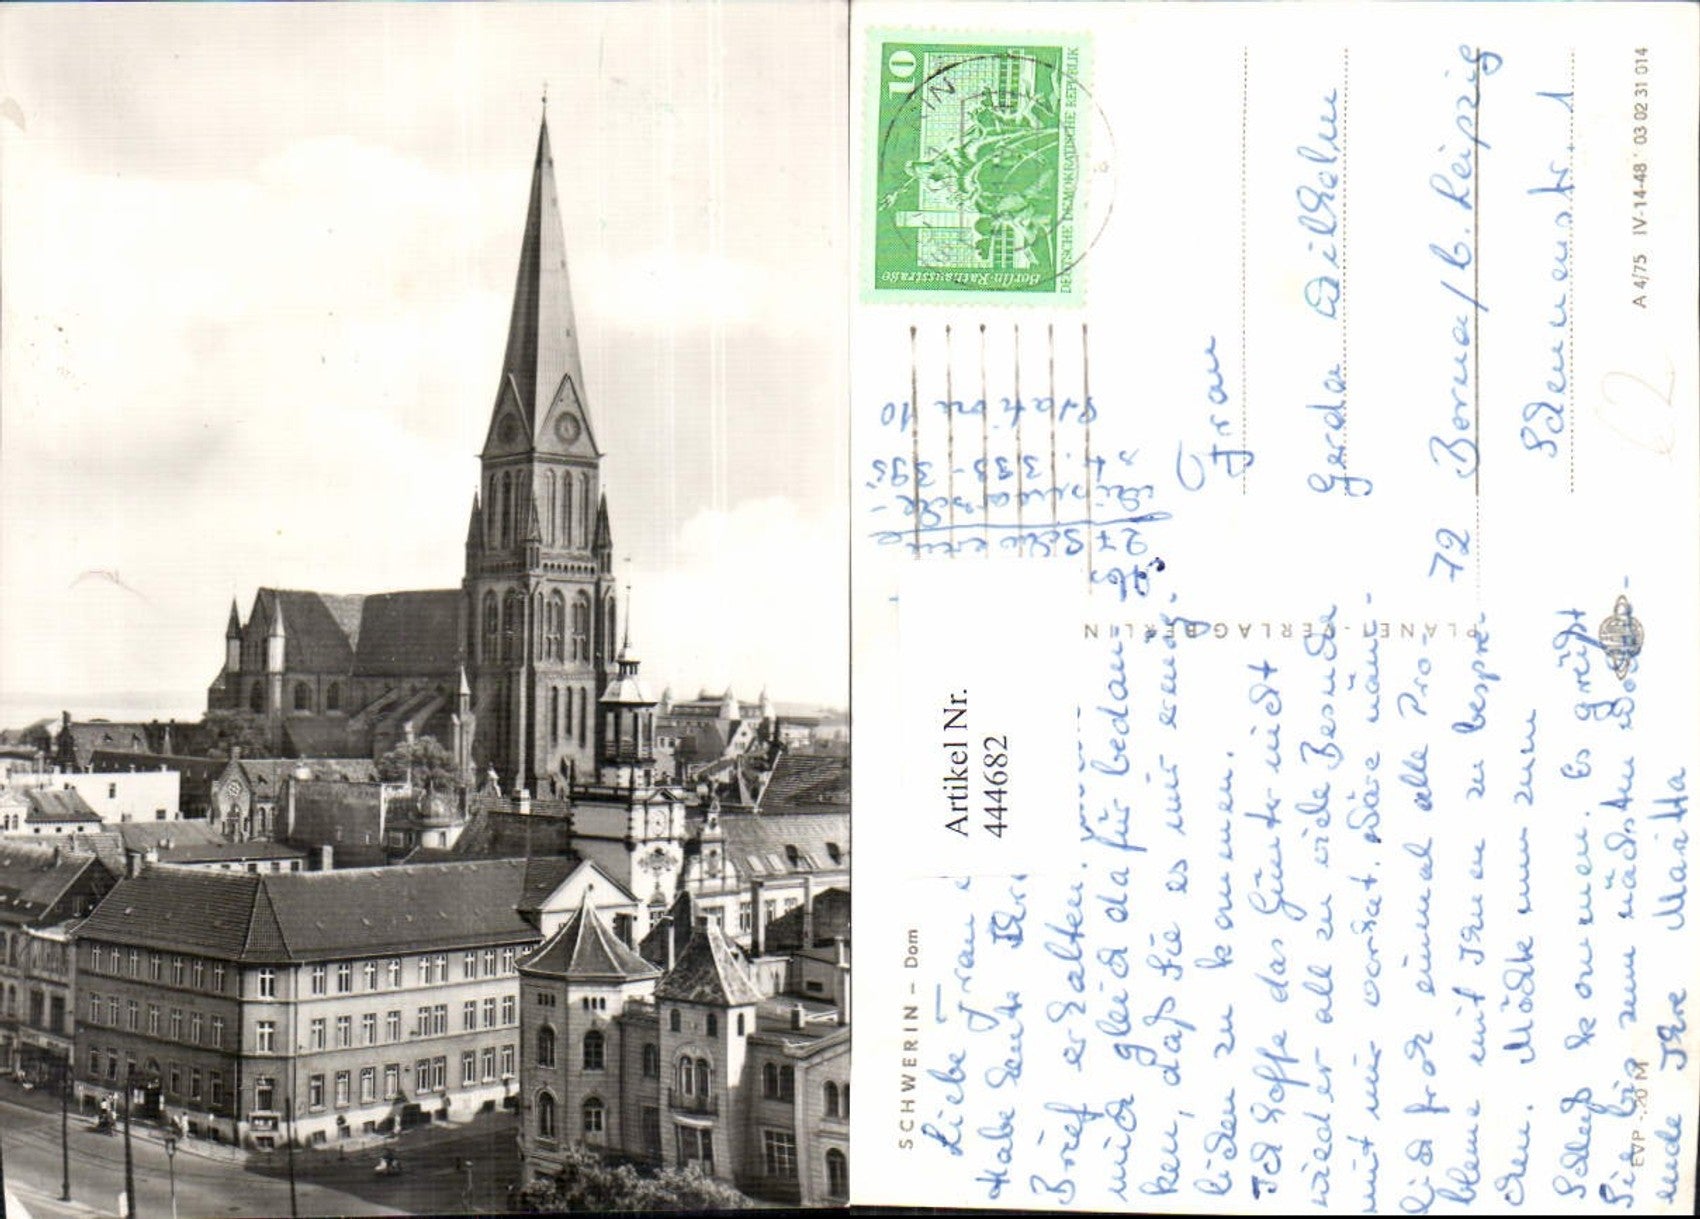 SCHWERIN – Dom
Liebe Frau
Habe heute Ihre
Brief erhalten.
mich gleich dafür bedan-
ken, daß Sie es mir ermög-
lichen zu kommen.
Ich hoffe das Günter nicht
wieder all zu viele Besuche
mit mir vorhat. Wäre näm-
lich froh einmal alle Pro-
bleme mit Ihnen zu bespre-
chen. Möchte nun zum
Schluß kommen. Es grüßt
Sie bis zum nächsten Wochen-
ende Ihre Maritta
EVP -.20 M
Artikel Nr.
444682
PLANET-VERLAG BERLIN
27 Schwerin
str. 393-395
Station 10
10
Berlin-Rathausstraße
DEUTSCHE DEMOKRATISCHE REPUBLIK
Frau
Gerda Wilhelm
72 Borna / b. Leipzig
str. 1
A 4/75 IV-14-48 03 02 31 014
62